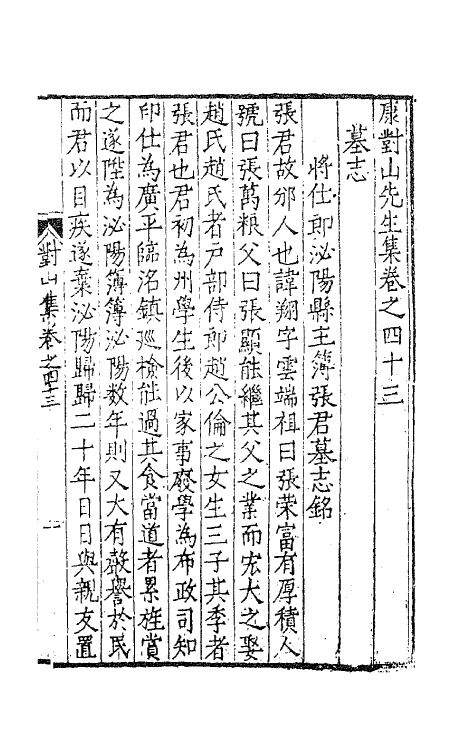 康對山先生集卷之四十三
墓志
將仕郎泌陽縣主簿張君墓志銘
張君故邠人也諱翔字雲端祖曰張荣富有厚積人
號曰張萬粮父曰張顯能繼其父之業而宏大之娶
趙氏趙氏者戶部侍郎趙公倫之女生三子其季者
張君也君初為州學生後以家事廢學為布政司知
印仕為廣平臨洺鎮廵檢能過其食當道者累旌賞
之遂陞為泌陽簿簿泌陽数年則又大有聲譽於民
而君以目疾遂棄泌陽歸歸二十年日日與親友置
對山集卷之四十三
一